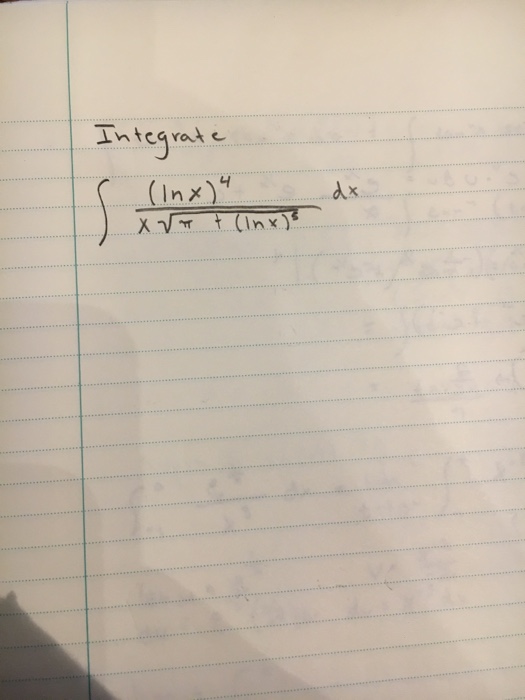 Integrate
∫ (ln x)⁴ / x√π + (ln x)⁵ dx